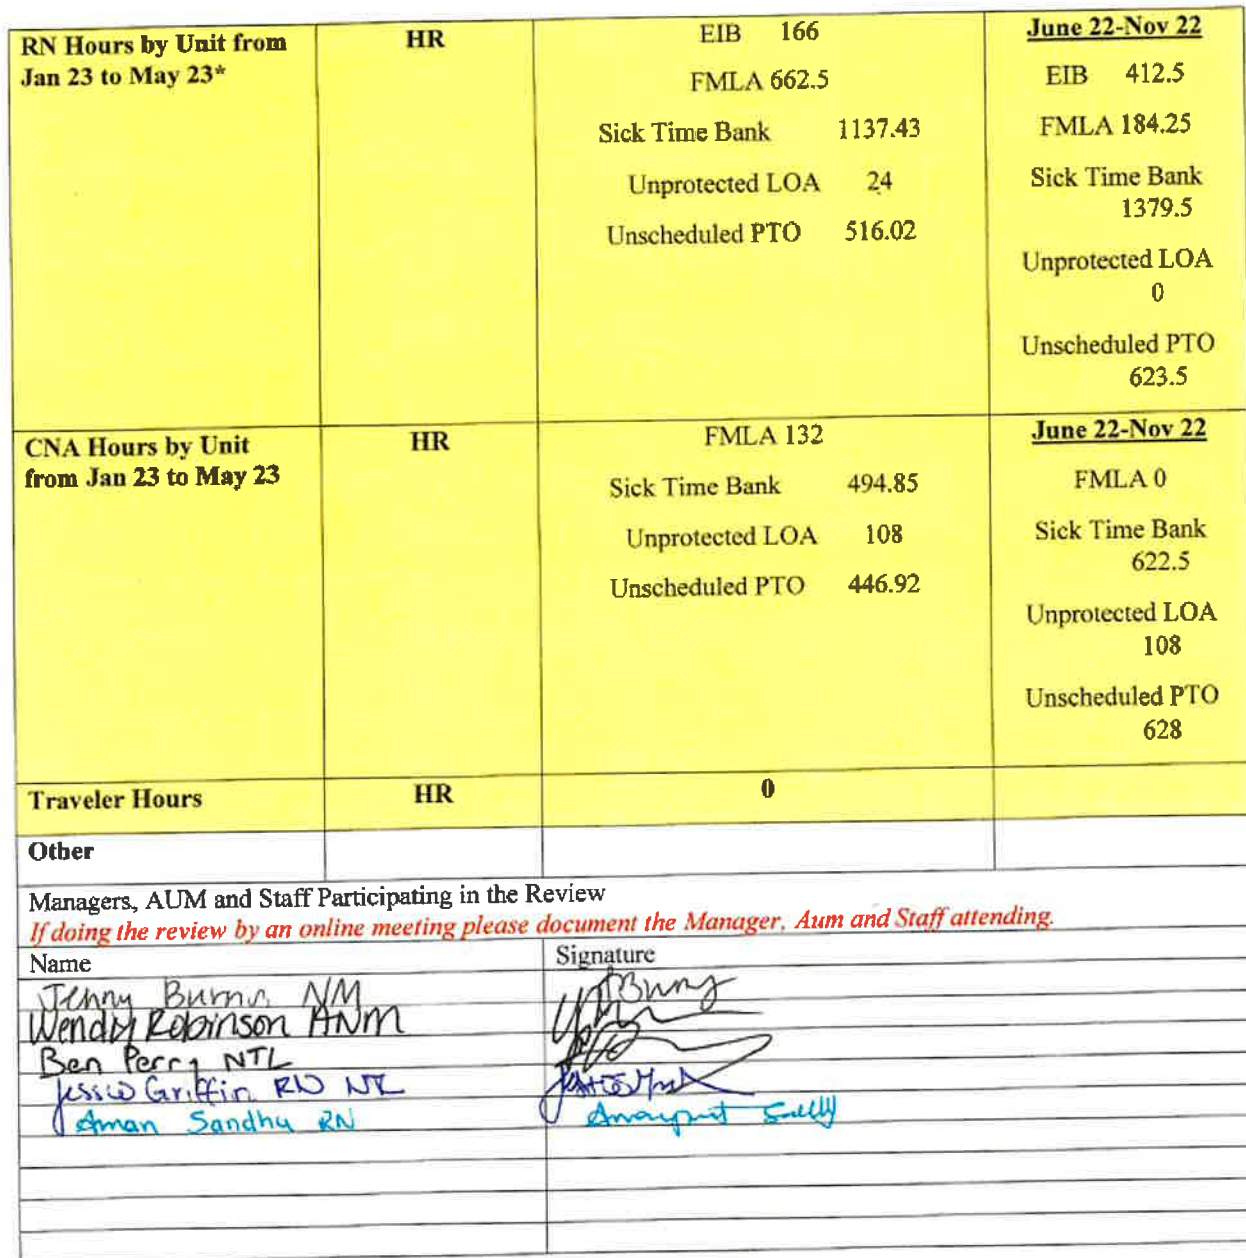 RN Hours by Unit from
Jan 23 to May 23*
HR
EIB 166
FMLA 662.5
Sick Time Bank 1137.43
Unprotected LOA 24
Unscheduled PTO 516.02
June 22-Nov 22
EIB 412.5
FMLA 184.25
Sick Time Bank
1379.5
Unprotected LOA
0
Unscheduled PTO
623.5
CNA Hours by Unit
from Jan 23 to May 23
HR
FMLA 132
Sick Time Bank 494.85
Unprotected LOA 108
Unscheduled PTO 446.92
June 22-Nov 22
FMLA 0
Sick Time Bank
622.5
Unprotected LOA
108
Unscheduled PTO
628
Traveler Hours HR 0
Other
Managers, AUM and Staff Participating in the Review
If doing the review by an online meeting please document the Manager, Aum and Staff attending.
Name Signature
Jenny Burns NM
Wendy Robinson ANM
Ben Perry NTL
Griffin RN
Aman Sandhu RN